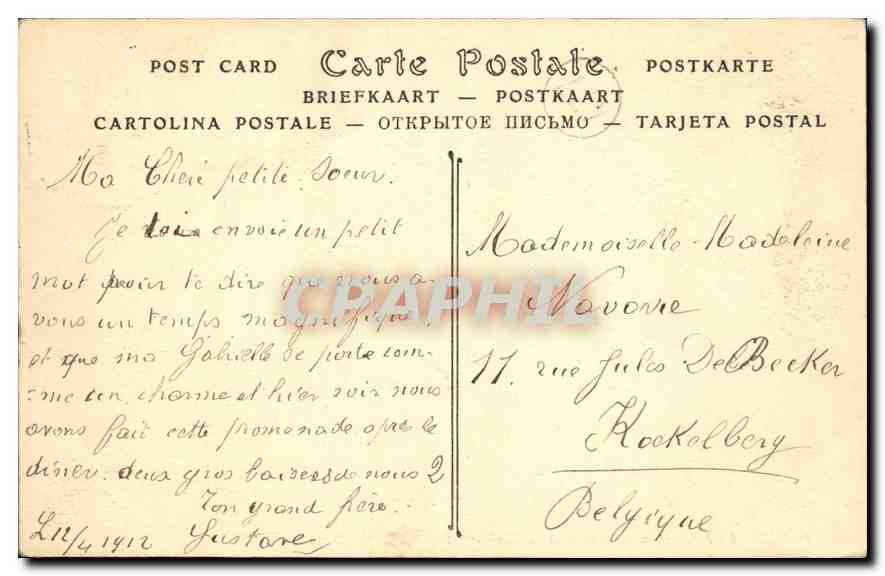 POST CARD Carte Postale POSTKARTE
BRIEFKAART — POSTKAART
CARTOLINA POSTALE — ОТКРЫТОЕ ПИСЬМО — TARJETA POSTAL
Ma Cheri petite Soeur.
Je envoie un petit
mot pour te dire que nous a-
vons un temps magnifique,
et que ma Gabrielle se porte com-
me un charme et hier soir nous
avons fait cette promenade apres le
diner. deux gros baisers de nous 2
Ton grand frère.
12/4 1912 Gustave
Mademoiselle Madeleine
Navarre
11. rue Jules De Becker
Koekelberg
Belgique
CPAPHIL